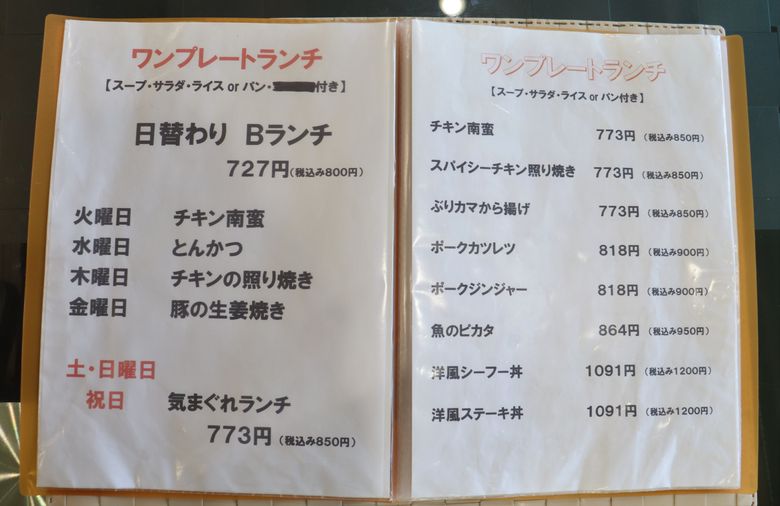 ワンプレートランチ
【スープ・サラダ・ライス or パン・付き】
日替わり Bランチ
727円（税込み800円）
火曜日 チキン南蛮
水曜日 とんかつ
木曜日 チキンの照り焼き
金曜日 豚の生姜焼き
土・日曜日
祝日 気まぐれランチ
773円（税込み850円）
ワンプレートランチ
【スープ・サラダ・ライス or パン付き】
チキン南蛮 773円（税込み850円）
スパイシーチキン照り焼き 773円（税込み850円）
ぶりカマから揚げ 773円（税込み850円）
ポークカツレツ 818円（税込み900円）
ポークジンジャー 818円（税込み900円）
魚のピカタ 864円（税込み950円）
洋風シーフー丼 1091円（税込み1200円）
洋風ステーキ丼 1091円（税込み1200円）